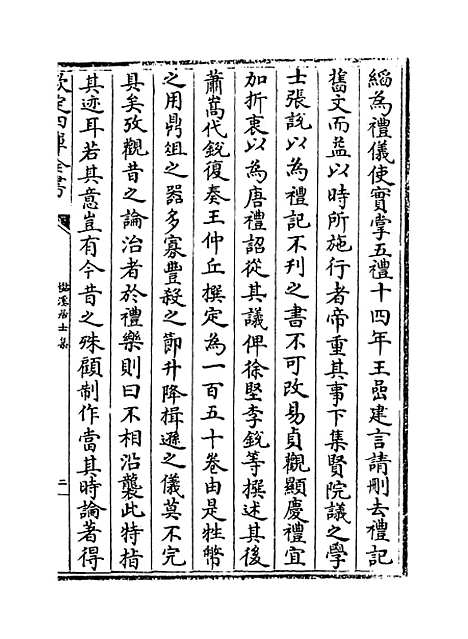 縚為禮儀使實掌五禮十四年王嵒建言請刪去禮記
舊文而益以時所施行者帝重其事下集賢院議之學
士張說以為禮記不刊之書不可改易貞觀顯慶禮宜
加折衷以為唐禮詔從其議俾徐堅李銳等撰述其後
蕭嵩代銳復奏王仲丘撰定為一百五十卷由是牲幣
之用鼎俎之器多寡豐殺之節升降揖遜之儀莫不完
具矣攷觀昔之論治者於禮樂則曰不相沿襲此特指
其迹耳若其意豈有今昔之殊顧制作當其時論著得
欽定四庫全書
溪居士集
二